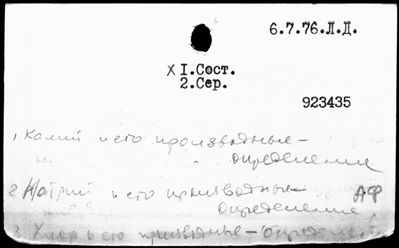 6.7.76.Л.Д.
× I.Сост.
2.Сер.
923435
1. Калий и его производные –
" определение
2. Натрий и его производные АФ
определение
3. Хлор и его производные – определение